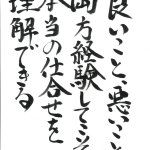 良いこと、悪いこと
両方経験してこそ
本当の仕合せを
理解できる